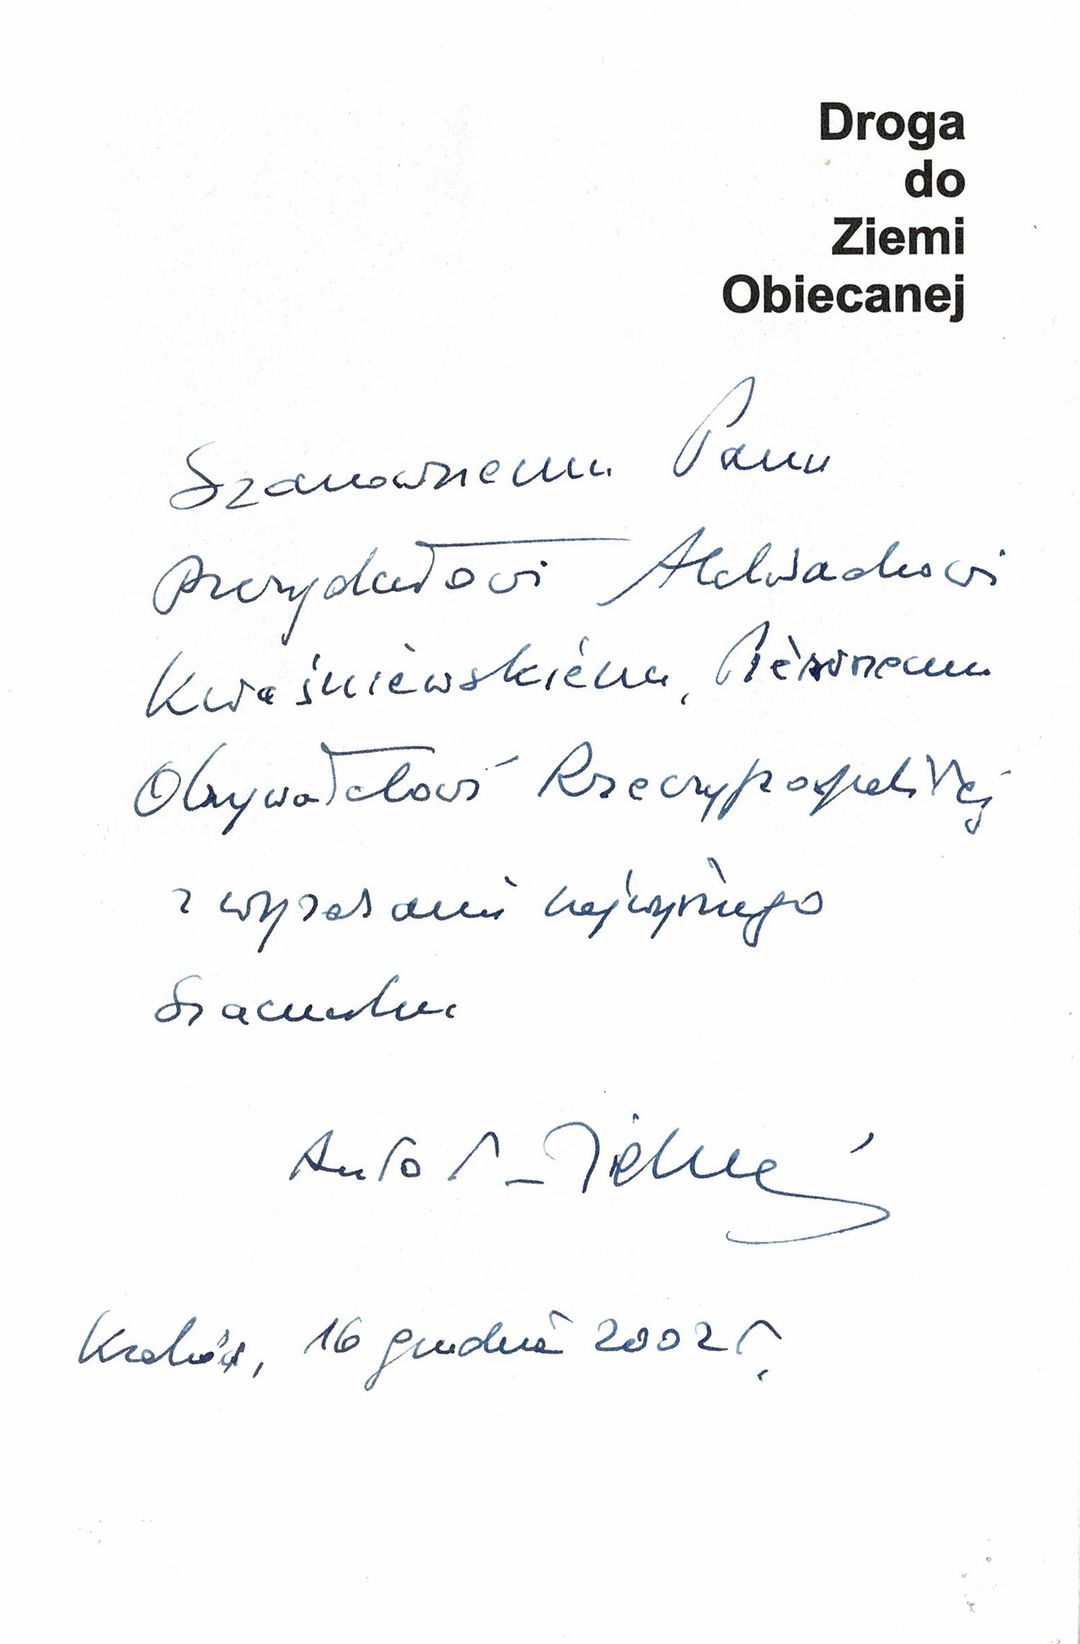 Droga
do
Ziemi
Obiecanej
Szanownemu Panu
Prezydentowi Aleksandrowi
Kwaśniewskiemu, Pierwszemu
Obywatelowi Rzeczypospolitej
z wyrazami najwyższego
szacunku
Autor -
Kraków, 16 grudnia 2002 r.